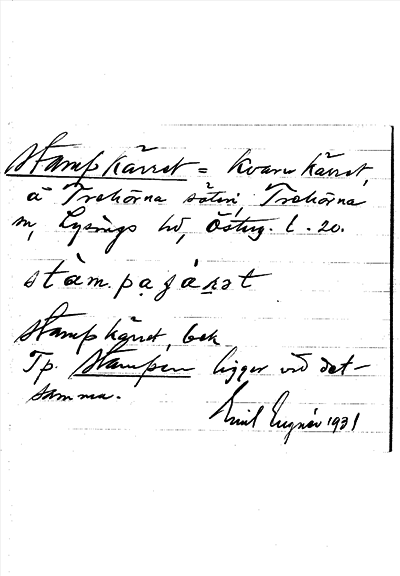 Stampkärret = Kvarnkärret,
å Trehörna säteri, Trehörna
sn, Lysings hd, Österg. l. 20.
stàm.pạʃáṟət
Stampkärret, bek
Tp. Stampen ligger vid det-
samma.
Emil 1931